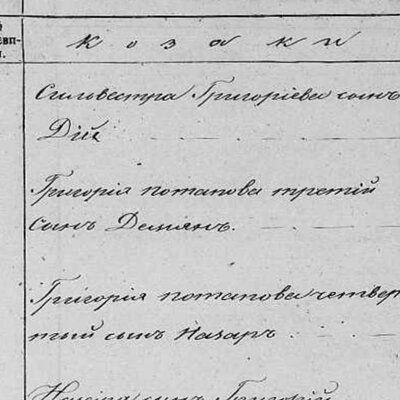 козаки
Сильвестра Григоріева сынъ
Дій
Григорія потапова третій
сынъ Демянъ.
Григорія потапова четвер
тый сынъ Назаръ
сынъ Григорій